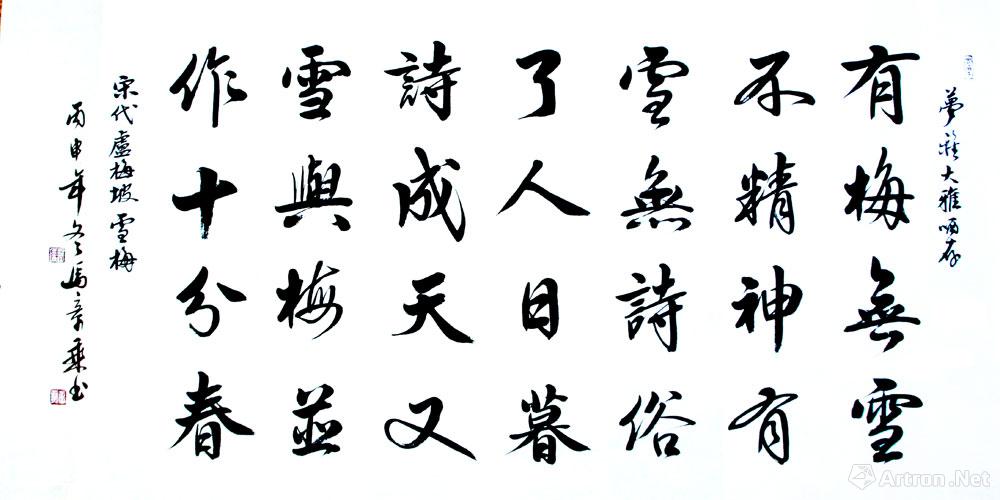 夢龍大雅哂存
有梅無雪
不精神有
雪無詩俗
了人日暮
詩成天又
雪與梅並
作十分春
宋代盧梅坡雪梅
丙申年冬馬章乘书
Artron.Net